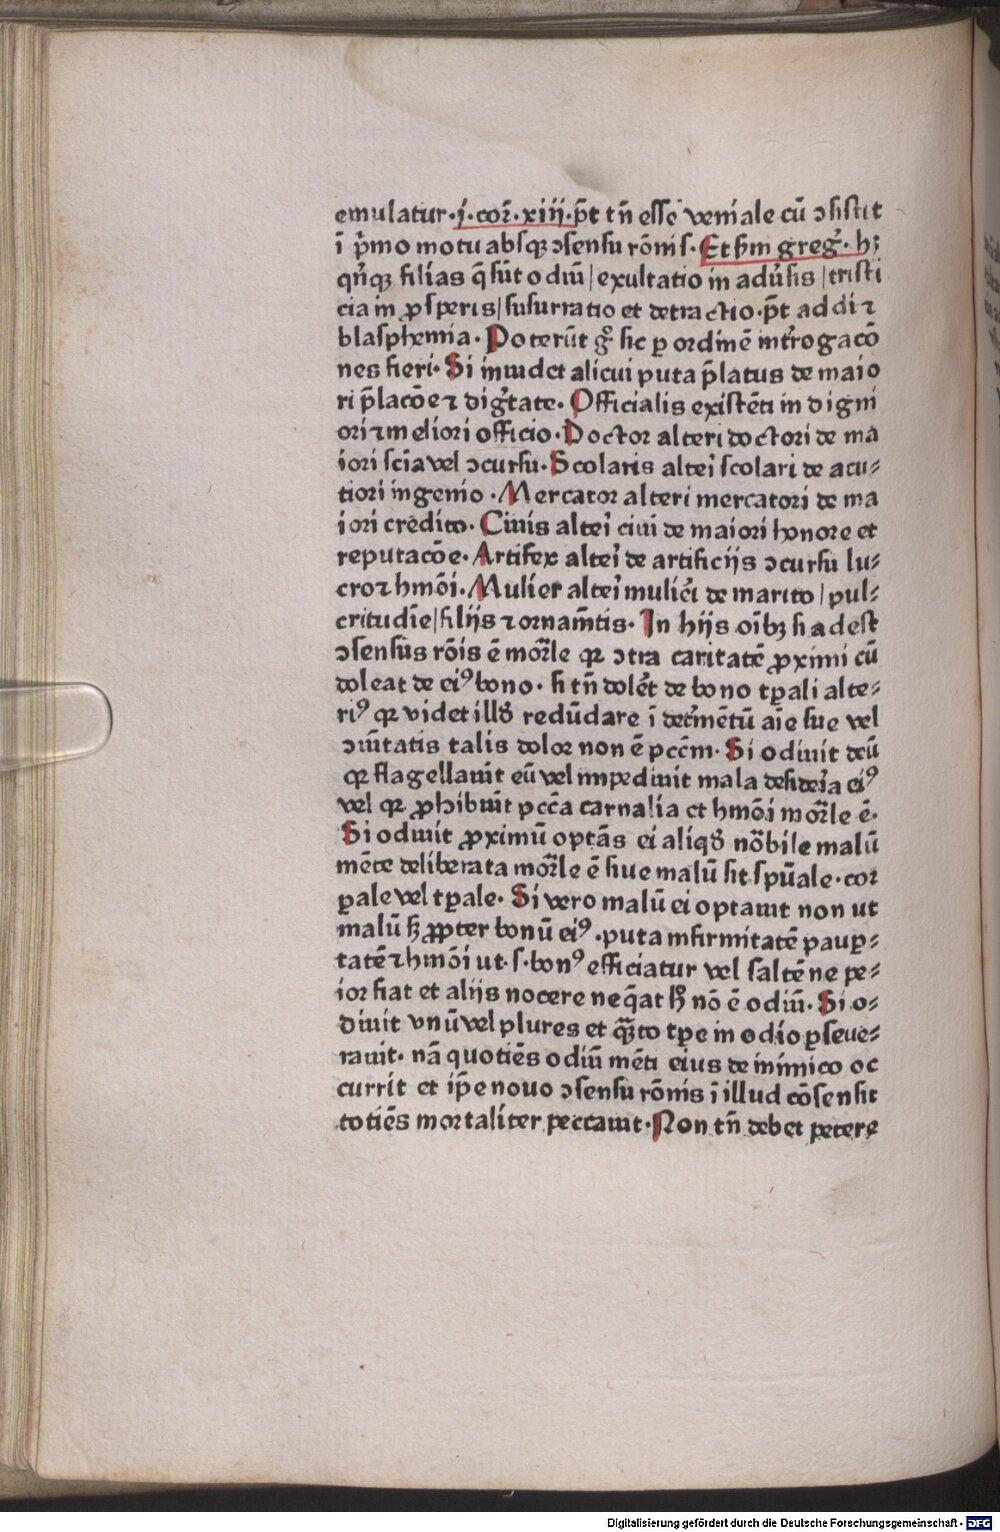 emulatur·j·cor̄·xiij·p̄t tn̄ esse veniale cū ↄsistit
ī p̄mo motu absqꝫ ↄsensu rōnis·Et sm̄ greg̉·hꝫ
qn̄qꝫ filias q̄ sūt odiū/exultatio in adu̾sis/tristi
cia in ꝓsperis/susurratio et detractio·p̄t addi ⁊
blasphemia·Poterūt g̉ sic ꝑ ordinē int̉rogacō
nes fieri·Si inuidet alicui puta p̄latus de maio
ri p̄lacōe ⁊ dig̉tate·Officialis existēti in digni
ori ⁊ meliori officio·Doctor alteri doctori de ma
iori scīa vel ↄcursu·Scolaris alteī scolari de acu⸗
tiori ingenio·Mercator alteri mercatori de ma
iori credito·Ciuis alteī ciui de maiori honore et
reputacōe·Artifex alteī de artificijs ↄcursu lu⸗
cro ⁊ hmōi·Mulier alteī muliēi de marito/pul⸗
critudīe/filijs ⁊ ornam̄tis·In hijs oībꝫ si adest
ↄsensus rōis ē mor̄le qꝛ ↄtra caritatē ꝓximi cū
doleat de eiꝰ bono·si tn̄ dolet̉ de bono tꝑali alte⸗
riꝰ qꝛ videt illd̄ redūdare ī det̉mētū aīe sue vel
ↄiūtatis talis dolor non ē pccm̄·Si odiuit deū
qꝛ flagellauit eū vel impediuit mala desideīa eiꝰ
vel qꝛ ꝓhibuit pccā carnalia et hmōi mor̄le ē·
Si odiuit ꝓximū optās ei aliqd̄ nōbile malū
mēte deliberata mor̄le ē siue malū sit spūale·cor
ꝑale vel tꝑale·Si vero malū ei optauit non ut
malū sꝫ ꝓpter bonū eiꝰ·puta infirmitatē pauꝑ⸗
tatē ⁊ hmōi ut·s·bonꝰ efficiatur vel saltē ne pe⸗
ior fiat et alijs nocere neq̄at hꝰ nō ē odiū·Si o⸗
diuit vnū vel plures et qᷓ̄to tꝑe in odio ꝑseue⸗
rauit·nā quotiēs odiū mēti eius de inimico oc
currit et ip̄e nouo ↄsensu rōnis ī illud cōsensit
totiēs mortaliter peccauit·Non tn̄ debet petere
Digitalisierung gefördert durch die Deutsche Forschungsgemeinschaft · DFG